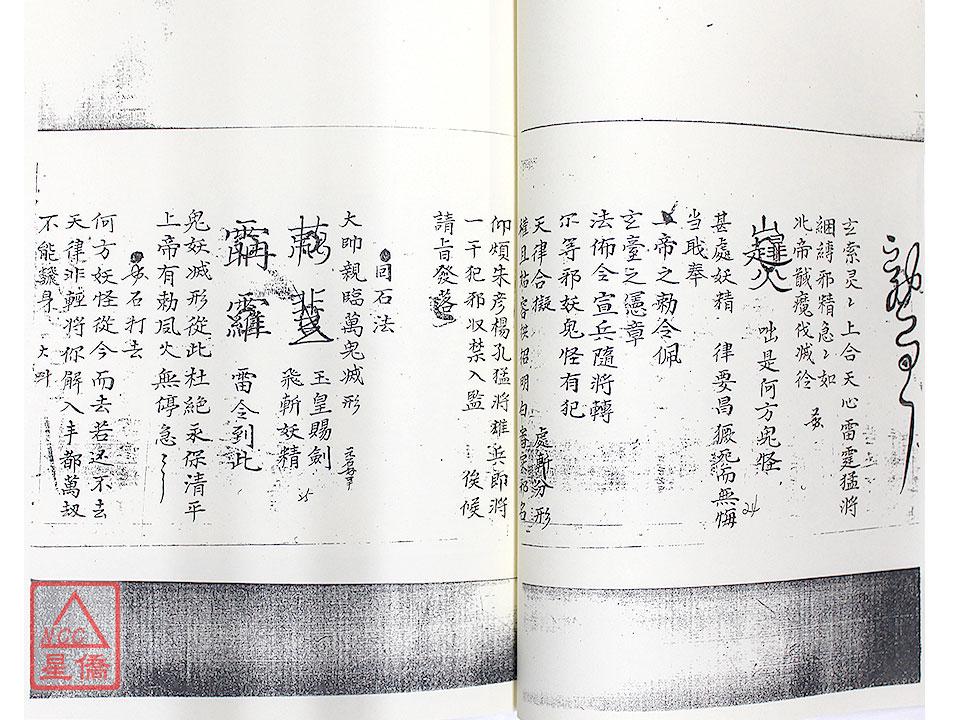 玄索灵灵上合天心雷霆猛將
綑縛邪精急急如
北帝馘魔伐滅徐
咄是何方鬼怪
甚處妖精 律要昌獗死而無悔
24
當戢奉
上帝之勅令佩
玄臺之憲章
法佈令宣兵隨將轉
尔等邪妖鬼怪有犯
天律合擬 處斬分形
姑容供招明白
仰煩朱彥楊孔猛將雄兵即將
一干犯邪収禁入監 俟候
請旨發落
回石法
大帥親臨萬鬼滅形
玉皇賜劍
飛斬妖精
25
雷令到此
鬼妖滅形從此杜絕永保清平
上帝有勅風火無停急
石打去
何方妖怪從今而去若还不去
天律非輕將你解入丰都萬劫
不能翻身 大叫
NCC
星僑